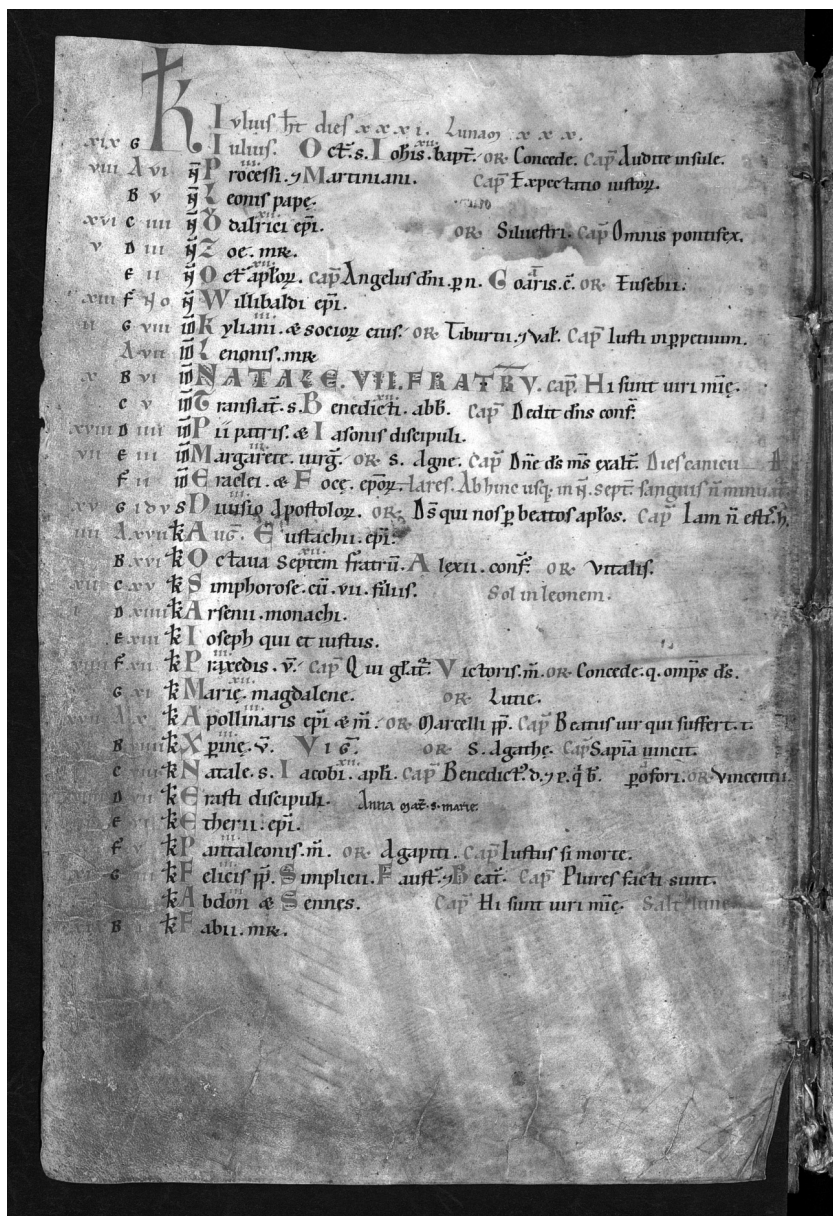 K Iulius ht dies xxxi. Lunam xxx.
xix G Iulius. Oct. s. Iohis. bapt. or Concede. Cap Audite insule.
viii A vi N Processi. ⁊ Martiniani. Cap Expectatio iustoꝝ.
B v N Leonis pape.
xvi C iiii N Odalrici epi. or Siluestri. Cap Omnis pontifex.
v D iii N Zoe. mr.
E ii N Oct aploꝝ. cap Angelus dni. p n. Goaris. c. or Eusebii.
xiii F N o N Willibaldi epi.
ii G viii ID Kyliani. & socioꝝ eius. or Tiburtii. ⁊ Val. Cap Iusti inppetuum.
A vii ID Zenonis. mr
x B vi ID NATALE. VII. FRATRV. cap Hi sunt uiri mie.
C v ID Translat. s. Benedicti. abb. Cap Dedit dns conf.
xviii D iiii ID Pii patris. & Iasonis discipuli.
vii E iii ID Margarete. uirg. or s. Agne. Cap Dne ds ms exalt. Dies canicu
F ii ID Eraclei. & Foce. epoꝝ. lares. Abhinc usq. in N. sept. sanguis n minuat.
xv G idus Diuisio Apostoloꝝ. or Ds qui nos p beatos aplos. Cap Iam n estis h.
iiii A xvii k Aug. Eustachii. epi.
B xvi k Octaua septem fratru. Alexii. conf. or Vitalis.
xii C xv k Simphorose. cu. vii. filiis. Sol in leonem.
D xiiii k Arsenii. monachi.
E xiii k Ioseph qui et iustus.
viiii F xii k Praxedis. v. Cap Qui glat. Victoris. m. or Concede. q. omps ds.
G xi k Marie. magdalene. or Lucie.
xvii A x k Apollinaris epi & m. or Marcelli pp. Cap Beatus uir qui suffert. t.
B viiii k Xpine. v. Vig. or S. Agathe. Cap Sapia uincit.
C k Natale. s. Iacobi. apli. Cap Benedict. d. ⁊ p. q b. p xpofori. or Vincentii.
D k Erasti discipuli. Anna mat. s. marie.
E k Etherii. epi.
F v k Pantaleonis. m. or Agapiti. Cap Iustus si morte.
G k Felicis pp. Simplicii. Faust. ⁊ Beat. Cap Plures facti sunt.
k Abdon & Sennes. Cap Hi sunt uiri mie. Salt lune
B k Fabii. mr.